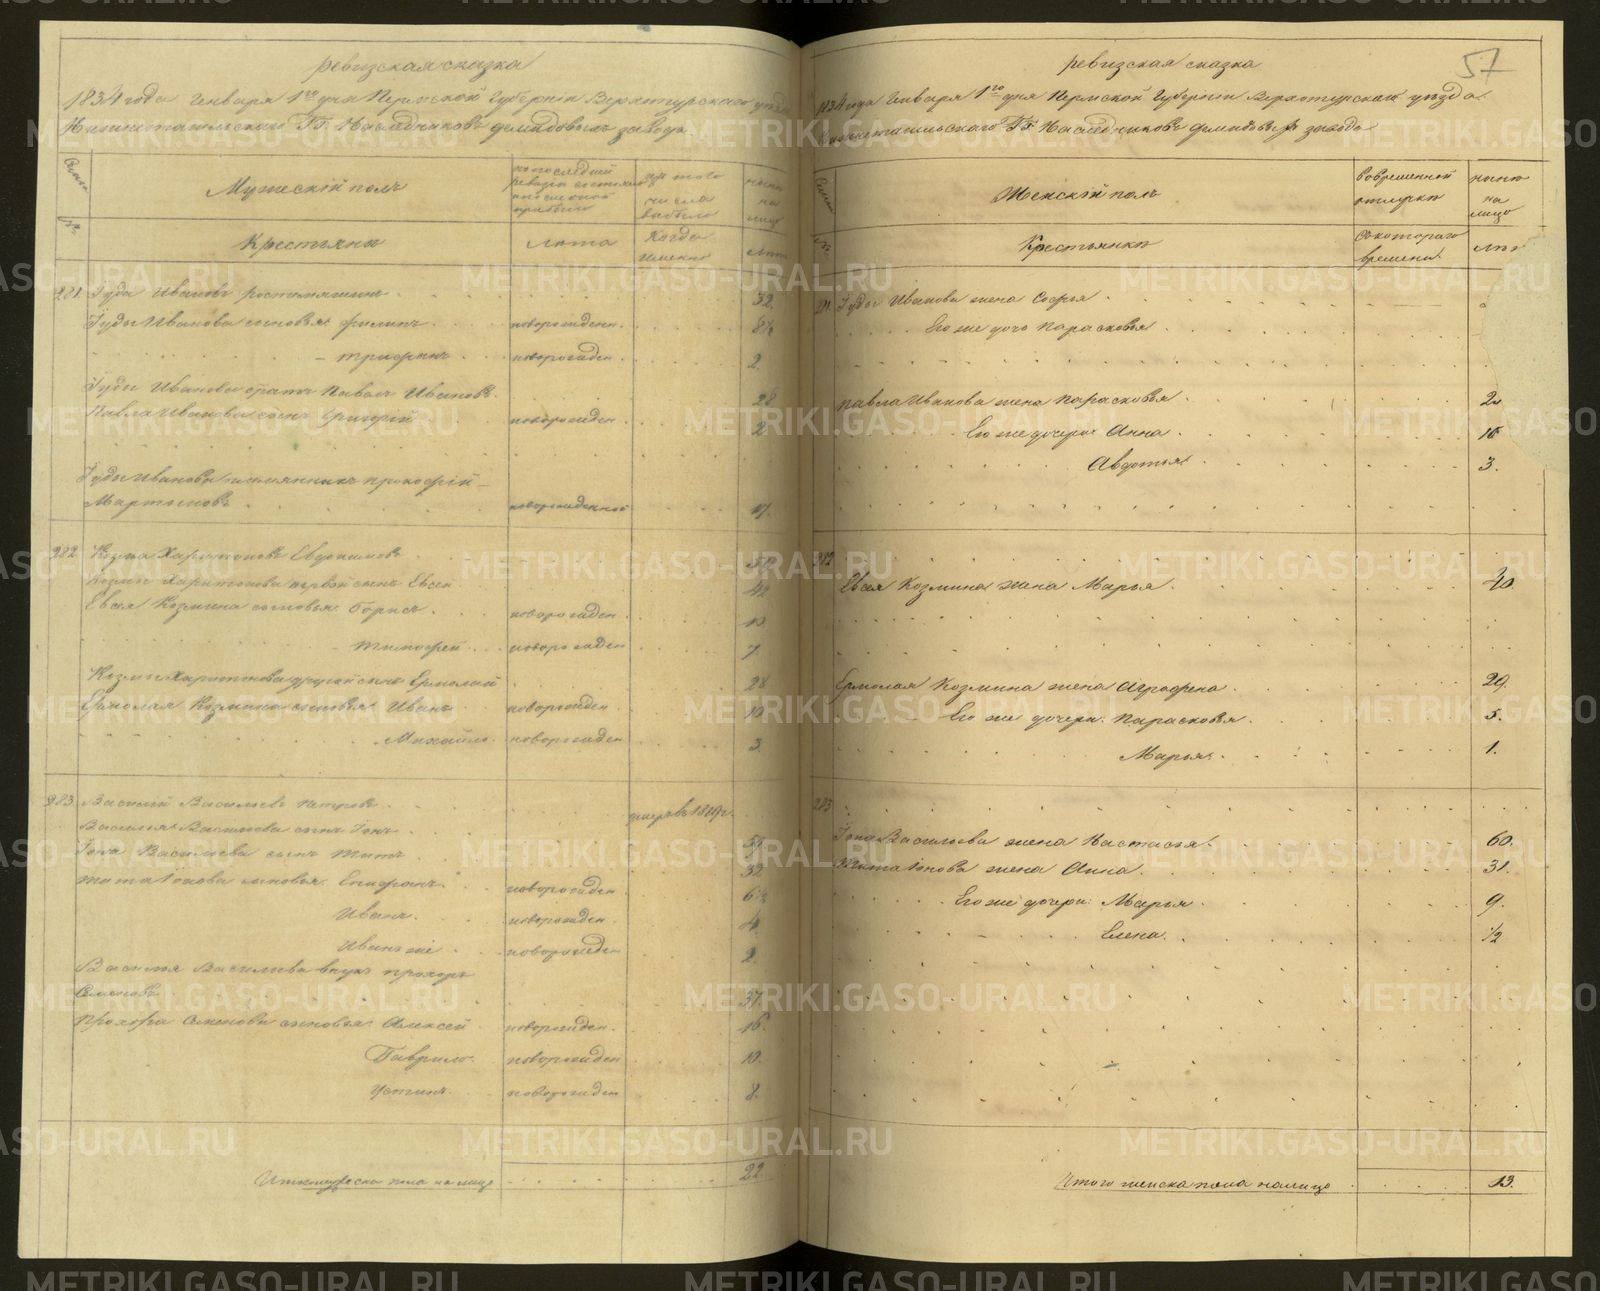 ревизская сказка
1834 года Генваря 1го дня Пермской Губернiи Верхотурского уезда
Нижнетагильского Гг. Наследниковъ Демидовыхъ завода
Мужескiй полъ
Крестьяне
Лета
когда именно
281. Iуда Ивановъ 32.
Iуды Ивановы сыновья Филипъ новорожден. 8½
Трифонъ новорожден. 2.
Iуды Иванова братъ Павелъ Ивановъ. 28
Павла Иванова сынъ Григорiй новорожден 2
Iуды Иванова племянникъ прокофiй
Мартыновъ новорожденной
282. Козма Харитоновъ Евдокимовъ
Козмы Харитонова первой сынъ Евсей 42
Евсея Козмина сыновья: Борисъ новорожден
Тимофей новорожден 7
Козмы Харитонова другой сынъ Ермолай 28
Ермолая Козмина сыновья Иванъ новорожден 10
Михайло новорожден 3.
283. Василiй Васильевъ Петровъ
Василья Васильева сынъ Iона
Iона Васильева сынъ Титъ 32
Тита Iонова сыновья: Епифанъ новорожден 6½
Иванъ новорожден 4
Иванъ же новорожден 2.
Василья Васильева внукъ прохоръ
Семеновъ 37.
Прохора Семенова сыновья: Алексей новорожден. 16
Гаврило новорожден 10.
Устинъ новорожден 8.
Итого мужеска пола на лицо 22
57
ревизская сказка
1834 года Генваря 1го дня Пермской Губернiи Верхотурскаго уезда
Нижнетагильскаго Гг. Наследниковъ Демидовыхъ завода
Женскiй полъ
Вовременной отлучке
ныне на лицо
Крестьянки
Скотораго времени
281. Iуды Иванова жена Софья
Его же дочь Парасковья
Павла Иванова жена Парасковья
Его же дочери Анна
Авдотья 3.
282
Евсея Козмина жена Марья 40.
Ермолая Козмина жена Аграфена 29.
Его же дочери: Парасковья 5.
Марья 1.
283
Iона Васильева жена Настасья 60.
Тита Iонова жена Анна 31.
Его же дочери: Марья 9.
Елена ½
Итого женска пола налицо 13.
METRIKI.GASO-URAL.RU